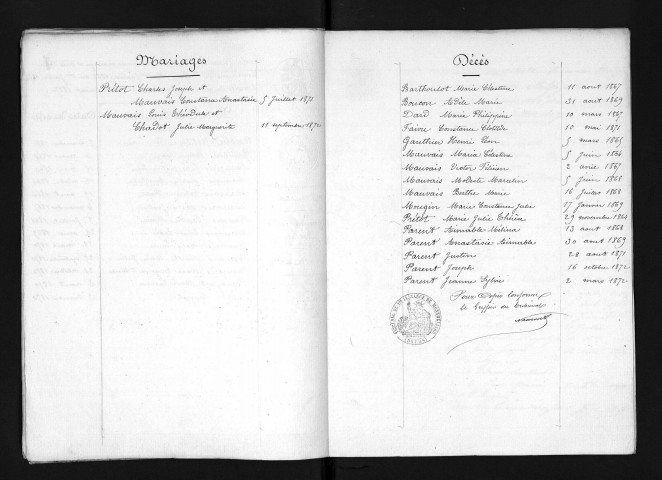 Mariages
Prétot Charles Joseph et
Mauvais Constance Anastasie 5 Juillet 1871
Mauvais Louis Théodule et
Chadot Julie Marguerite 11 septembre 1872
Décès
Barthoulot Marie Célestine 11 aout 1867
Boucon Adèle Marie 31 aout 1869
Dard Marie Philippine 10 mars 1867
Faivre Constance Clotilde 10 mai 1871
Gauthier Henri Léon 5 mars 1865
Mauvais Maria Célestine 5 Juin 1864
Mauvais Victor 2 avril 1867
Mauvais Modeste Marcelin 5 Juin 1868
Mauvais Berthe Marie 16 Juillet 1868
Mougin Marie Constance Julie 17 Janvier 1869
Prétot Marie Julie Thérèse 29 novembre 1864
Parent Aimable Mélina 13 aout 1868
Parent Anastasie Aimable 30 aout 1869
Parent Justin 28 aout 1871
Parent Joseph 16 octobre 1872
Parent Jeanne Sylvie 2 mars 1872
Pour Copie Conforme
Le Greffier du Tribunal